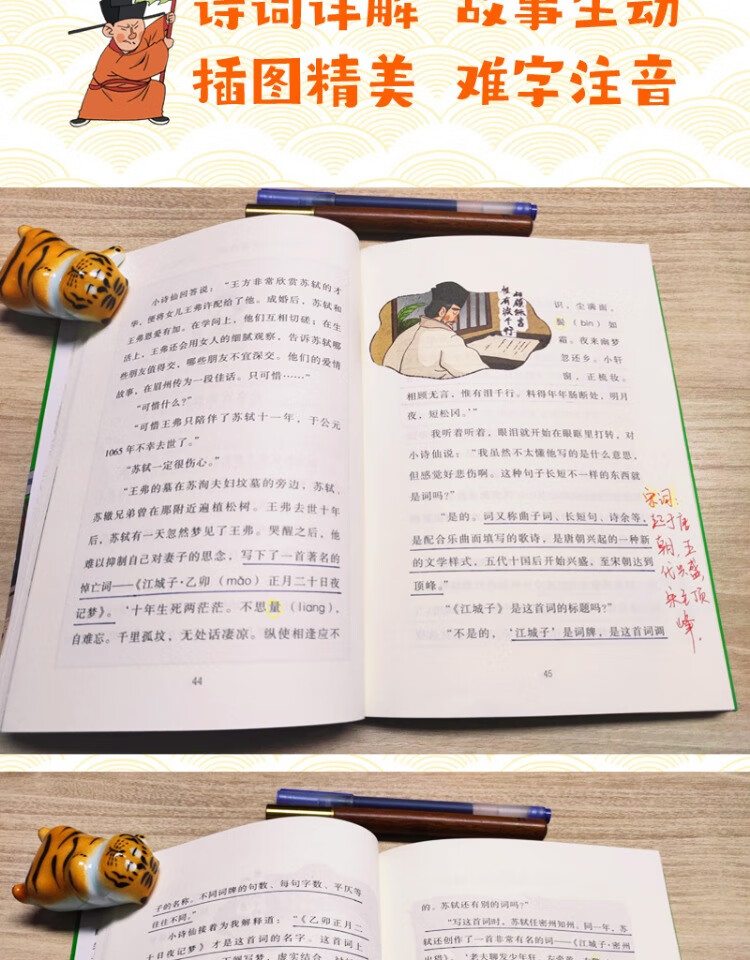 诗词详解 故事生动
插图精美 难字注音
小诗仙回答说：“王方非常欣赏苏轼的才
华，便将女儿王弗许配给了他。成婚后，苏轼和
王弗恩爱有加。在学问上，他们互相切磋；在生
活上，王弗还会用女人的细腻观察，告诉苏轼哪
些朋友值得交，哪些朋友不宜深交。他们的爱情
故事，在眉州传为一段佳话。只可惜……”
“可惜什么？”
“可惜王弗只陪伴了苏轼十一年，于公元
1065 年不幸去世了。”
“苏轼一定很伤心。”
“王弗的墓在苏洵夫妇坟墓的旁边。苏轼、
苏辙兄弟曾在那附近遍植松树。王弗去世十年
后，苏轼有一天忽然梦见了王弗。哭醒之后，他
难以抑制自己对妻子的思念，写下了一首著名的
悼亡词——《江城子·乙卯（mǎo）正月二十日夜
记梦》。‘十年生死两茫茫。不思量（liang），
自难忘。千里孤坟，无处话凄凉。纵使相逢应不
44
相顾无言
惟有泪千行
识，尘满面，
鬓（bìn）如
霜。夜来幽梦
忽还乡。小轩
窗，正梳妆。
相顾无言，惟有泪千行。料得年年肠断处，明月
夜，短松冈。’”
我听着听着，眼泪就开始在眼眶里打转，对
小诗仙说：“我虽然不太懂他写的是什么意思，
但感觉好悲伤啊。这种句子长短不一样的东西就
是词吗？”
“是的。词又称曲子词、长短句、诗余等，
是配合乐曲而填写的歌诗，是唐朝兴起的一种新
的文学样式，五代十国后开始兴盛，至宋朝达到
顶峰。”
“《江城子》是这首词的标题吗？”
“不是的，‘江城子’是词牌，是这首词调
45
宋词：
起于唐
朝，五
代兴盛，
宋立顶
峰．
子的名称。不同词牌的句数、每句字数、平仄等
往往不同。”
小诗仙接着为我解释道：“《乙卯正月二
十日夜记梦》才是这首词的名字。这首词上
的。苏轼还有别的词吗？”
“写这首词时，苏轼任密州知州。同一年，苏
轼还创作了一首非常有名的词——《江城子·密州
出猎》。‘老夫聊发少年狂，左牵黄，右